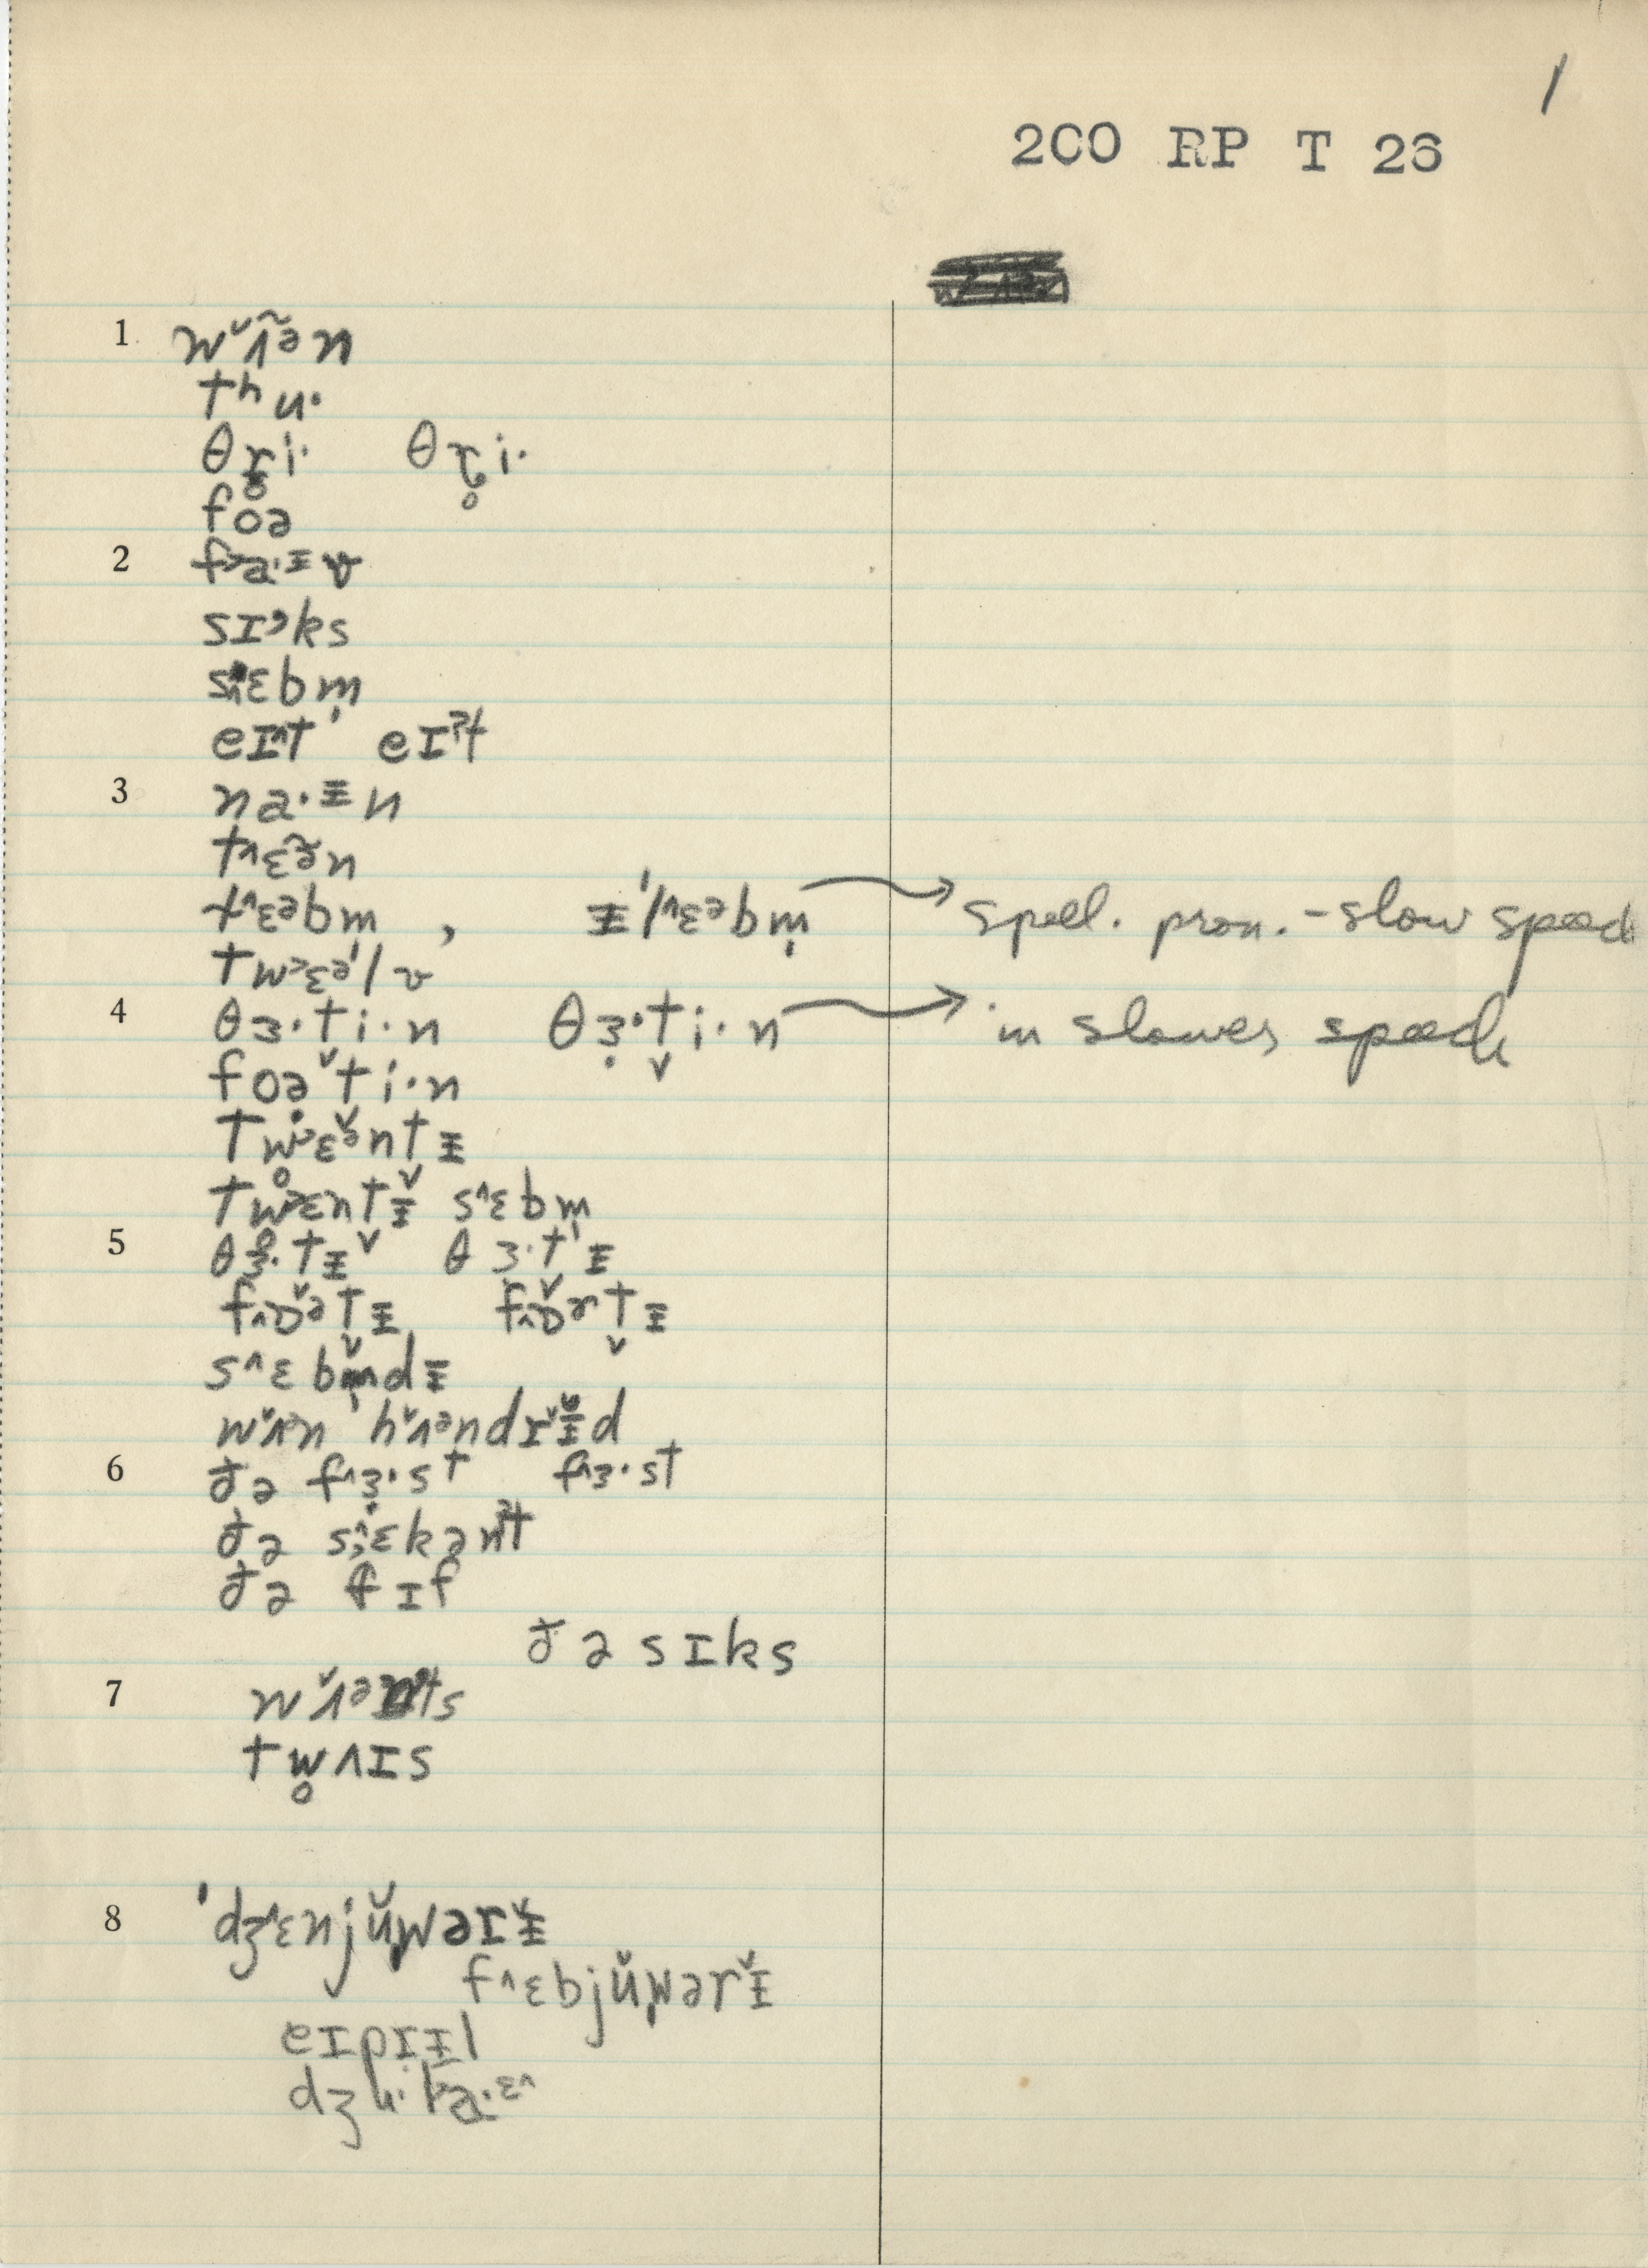 1
200 RP T 26
1 wˇʌ̃ən
tʰu·
θɹ̥i· θɾ̥i·
foə
2 f˃a·ᵻv
sɪ˒ks
s˄ɛbm̩
eɪ˄t' eɪˀt
3 na·ᵻn
t˄ɛə̃n
t˄ɛəbm , ᵻ'l˄ɛəbm̩ → spell. pron. - slow speed
tw˃ɛə'lv
4 θɜ·ti·n θɜ̣·t̬i·n → in slower speech
foəˇti·n
tw̥˃ɛə̌ntᵻ
tw̥˃ɛntᵻ̌ s˄ɛbm̩
5 θɜ·tᵻˇ θɜ·t'ᵻ
f˄ɒ̌ətᵻ f˄ɒ̌rt̬ᵻ
s˄ɛbm̩̌dᵻ
wˇʌən hˇʌəndɹˇᵻd
6 ðə f˄ɜ̣·st f˄ɜ·st
ðə s˄ɛkənˀt
ðə fɪf
ðə sɪks
7 wˇʌənˀts
tw̥ʌɪs
8 'dʒ˄ɛnjŭwəɹᵻ̌
f˄ɛbjŭwərᵻ̌
eɪpɹᵻl
dʒu·la·ɛ˄